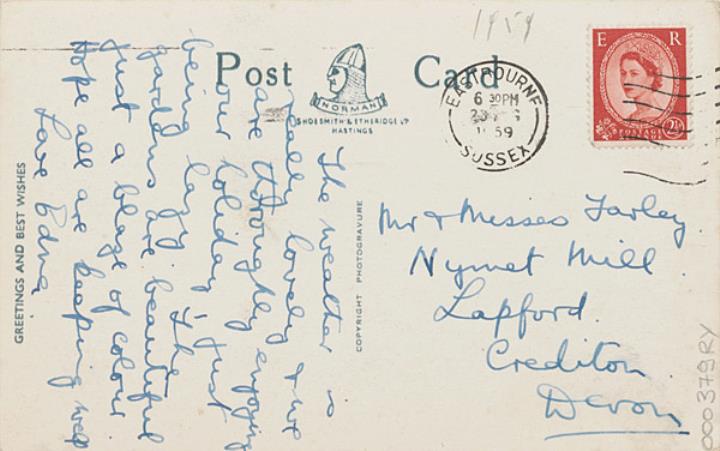 1959
Post Card
NORMAN
SHOESMITH & ETHERIDGE LTD
HASTINGS
EASTBOURNE
6 30PM
23
1959
SUSSEX
E R
POSTAGE
2½
The weather is
really lovely & we
are throughly enjoying
our holiday just
being lazy. The
gardens are beautiful
just a blaze of colour
Hope all are keeping well
Love Edna
GREETINGS AND BEST WISHES
COPYRIGHT PHOTOGRAVURE
Mr & Messes Farley
Nymet Mill
Lapford.
Crediton
Devon
000379RY